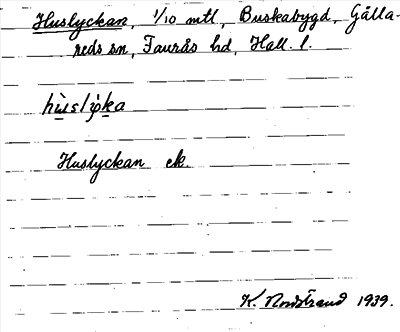 Huslyckan, 1/10 mtl, Buskabygd, Gälla-
reds sn, Faurås hd, Hall. l.
hùslỳka
Huslyckan ek
K. Nordstrand 1939.